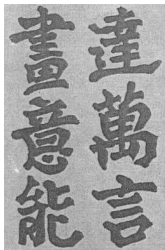 達萬言
畫意能